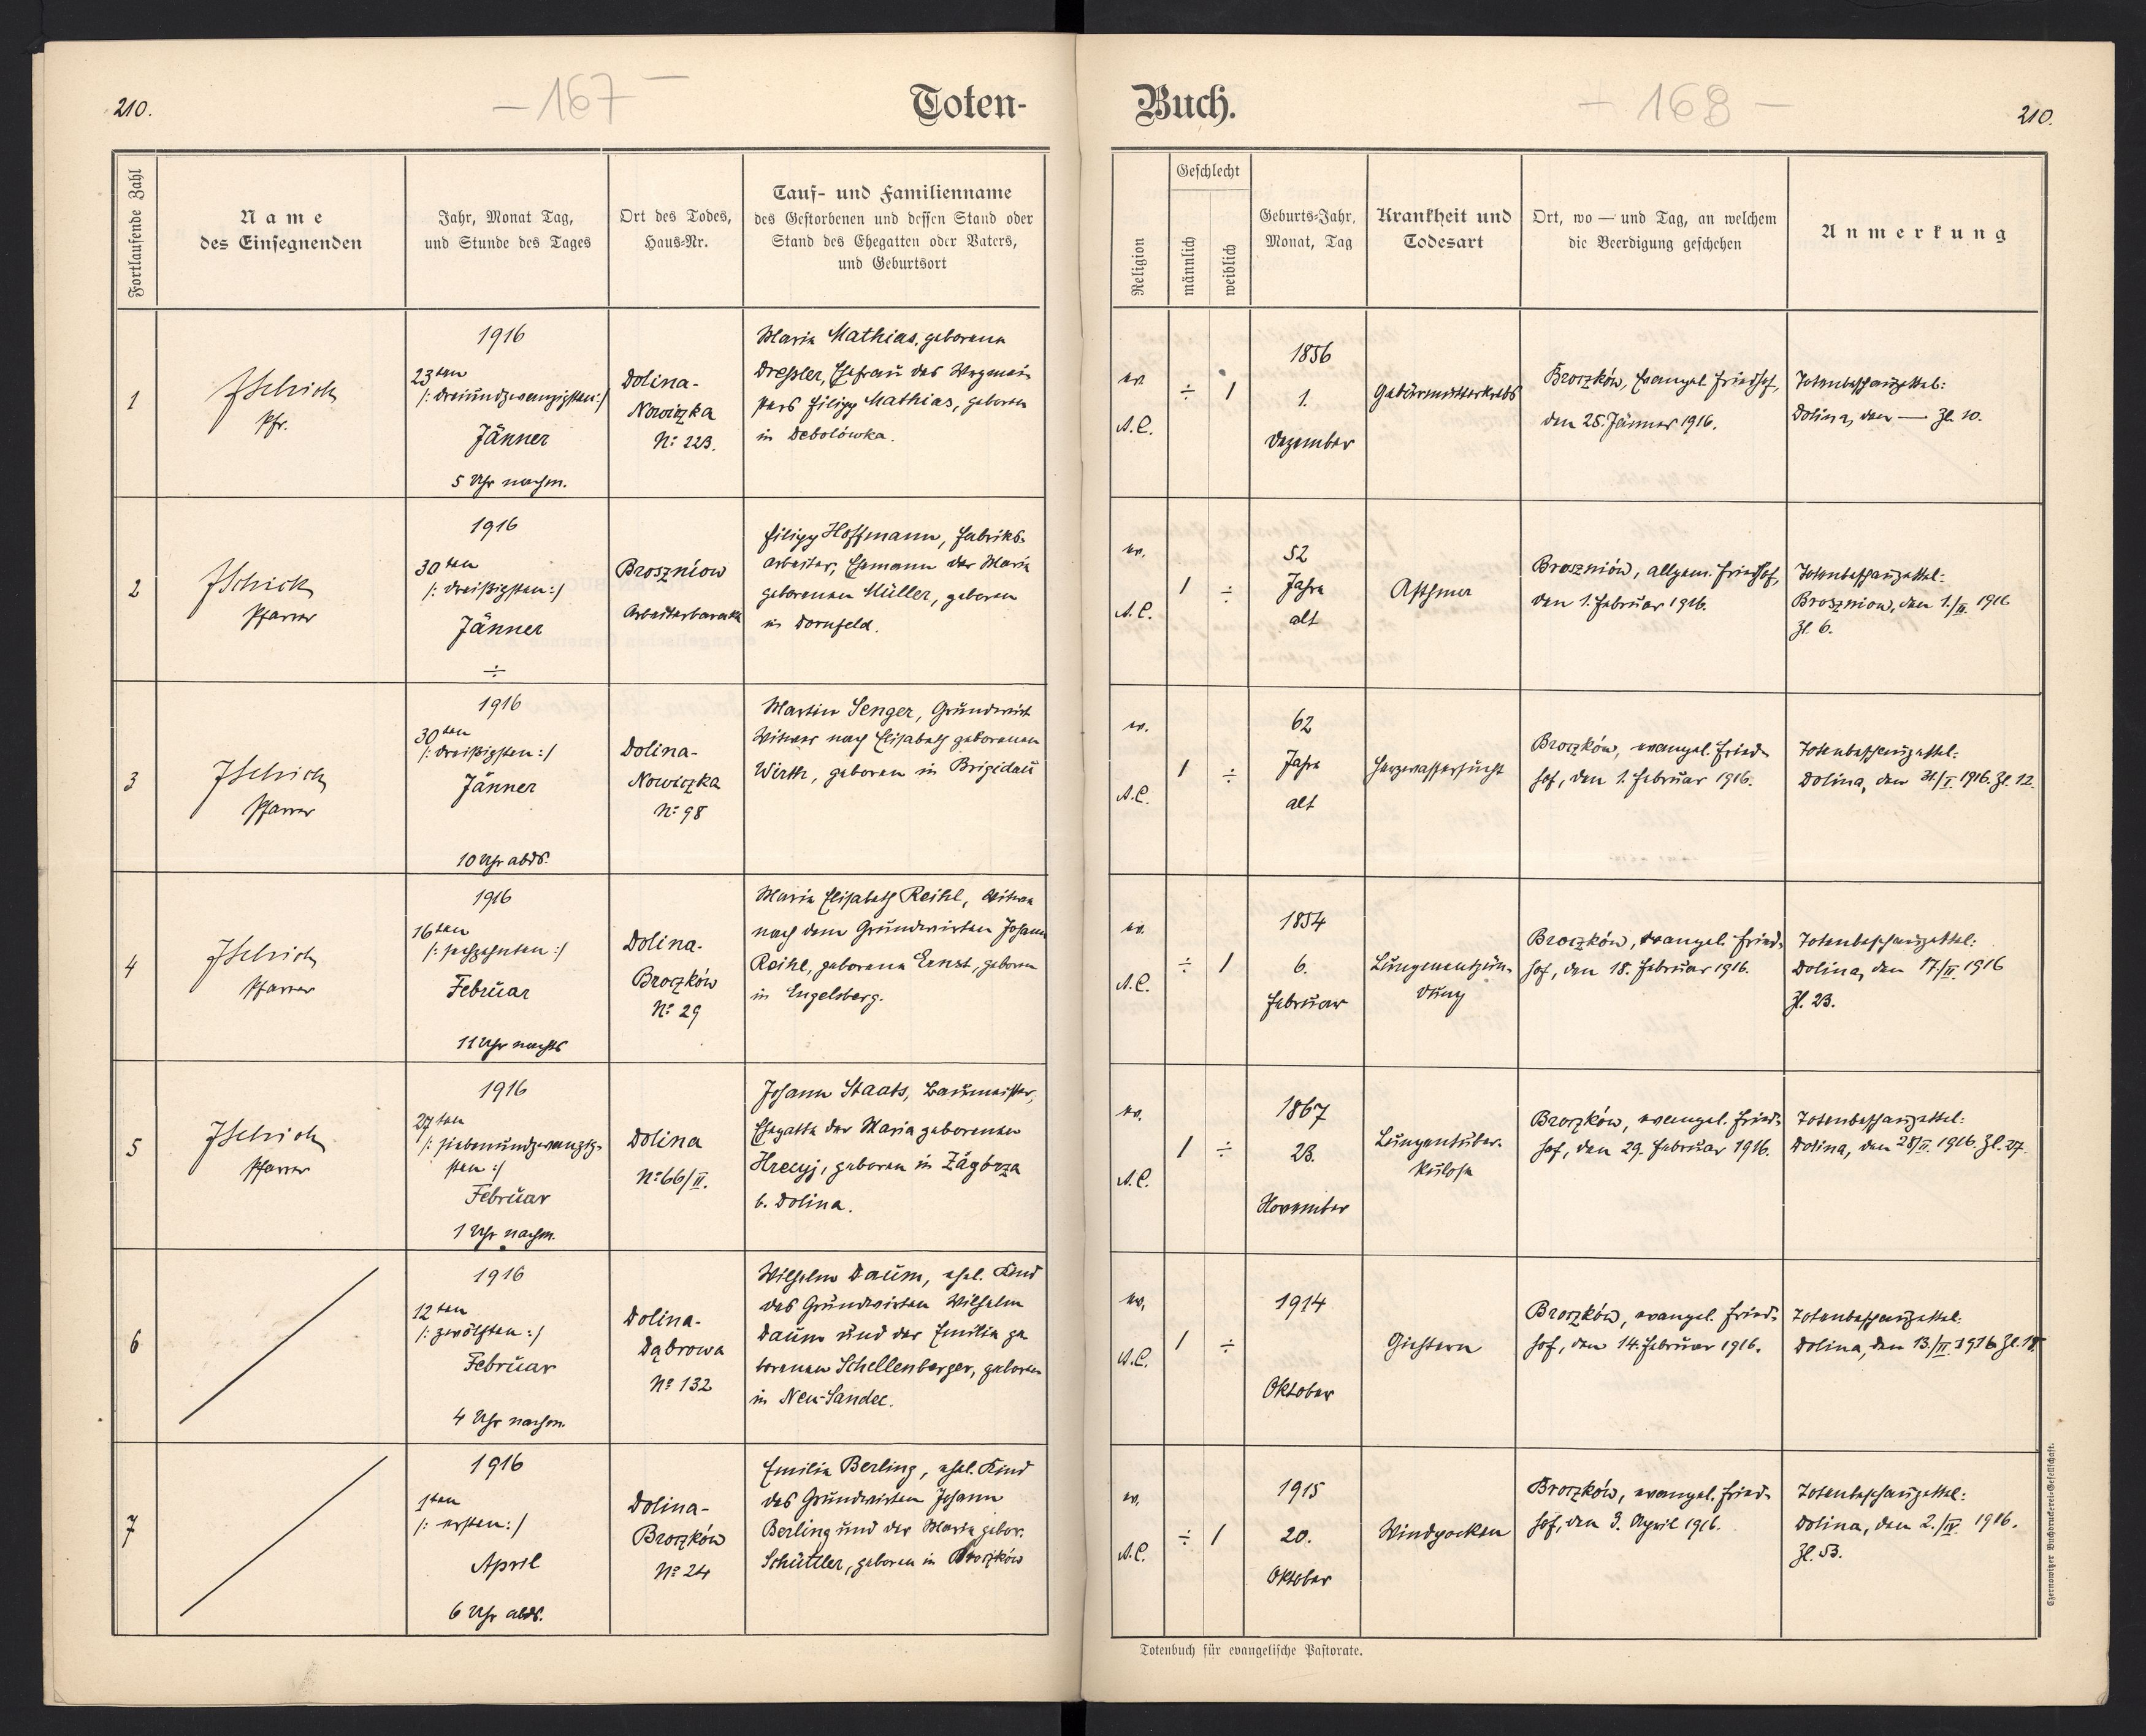 210.
— 167 —
Toten-
Fortlaufende Zahl
Name
des Einsegnenden
Jahr, Monat Tag,
und Stunde des Tages
Ort des Todes,
Haus-Nr.
Tauf- und Familienname
des Gestorbenen und dessen Stand oder
Stand des Ehegatten oder Vaters,
und Geburtsort
1
Pfr.
1916
23ten
/: dreiundzwanzigsten :/
Jänner
5 Uhr nachm.
Dolina-
Nowiczka
No: 223.
Maria Mathias, geborene
Dreßler, Ehefrau des Wegmei-
sters Filipp Mathias, geboren
in Debolówka.
2
Pfarrer
1916
30ten
/: dreißigsten :/
Jänner
÷
Broszniow
Arbeiterbarake
Filipp Hoffmann, Fabriks-
arbeiter, Ehemann der Maria
geborenen Müller, geboren
in Dornfeld.
3
Pfarrer
1916
30ten
/: dreißigsten :/
Jänner
10 Uhr abds.
Dolina-
Nowiczka
No: 98
Martin Senger, Grundwirt
Witwer nach Elisabeth geborenen
Wirth, geboren in Brigidau
4
Pfarrer
1916
16ten
/: sechzehnten :/
Februar
11 Uhr nachts
Dolina-
Broczków
No: 29
Maria Elisabeth Reihl, Witwe
nach dem Grundwirten Johann
Reihl, geborene Ernst, geboren
in Engelsberg.
5
Pfarrer
1916
27ten
/: siebenundzwanzig-
sten :/
Februar
1 Uhr nachm.
Dolina
No: 66/II.
Johann Staats, Baumeister,
Ehegatte der Maria geborenen
Hrecyj, geboren in Zágórza
b. Dolina.
6
1916
12ten
/: zwölften :/
Februar
4 Uhr nachm.
Dolina-
Dąbrowa
No 132
Wilhelm Daum, ehel. Kind
des Grundwirten Wilhelm
Daum und der Emilia ge
borenen Schellenberger, geboren
in Neu-Sandec.
7
1916
1ten
/: ersten :/
April
6 Uhr abds.
Dolina-
Broczków
No 24
Emilia Berling, ehel. Kind
des Grundwirten Johann
Berling und der Maria gebor.
Schüttler, geboren in Broczków
Buch.
+ 168 —
210.
Religion
Geschlecht
männlich
weiblich
Geburts-Jahr,
Monat, Tag
Krankheit und
Todesart
Ort, wo — und Tag, an welchem
die Beerdigung geschehen
Anmerkung
ev.
A.C.
÷ 1
1856
1.
Dezember
Gebärmutterkrebs
Broczków, Evangel. Friedhof,
den 25. Jänner 1916.
Totenbeschauzettel:
Dolina, den — Zl. 10.
ev.
A.C.
1 ÷
52
Jahre
alt
Asthma
Broszniów, allgem. Friedhof,
den 1. Februar 1916.
Totenbeschauzettel:
Broszniow, den 1./II. 1916
Zl. 6.
ev.
A.C.
1 ÷
62
Jahre
alt
Herzwassersucht
Broczków, evangel. Fried-
hof, den 1. Februar 1916.
Totenbeschauzettel:
Dolina, den 31./I. 1916. Zl. 12.
ev.
A.C.
÷ 1
1854
6.
Februar
Lungenentzün-
dung
Broczków, evangel. Fried-
hof, den 18. Februar 1916.
Totenbeschauzettel:
Dolina, den 17./II. 1916
Zl. 23.
ev.
A.C.
1 ÷
1867
23.
November
Lungentuber-
kulose
Broczków, evangel. Fried-
hof, den 29. Februar 1916.
Totenbeschauzettel:
Dolina, den 28/II. 1916. Zl. 27.
ev.
A.C.
1 ÷
1914
Oktober
Gichtern
Broczków, evangel. Fried-
hof, den 14. Februar 1916.
Totenbeschauzettel:
Dolina, den 13./II. 1916 Zl.
ev.
A.C.
÷ 1
1915
20.
Oktober
Windpocken
Broczków, evangel. Fried-
hof, den 3. April 1916.
Totenbeschauzettel:
Dolina, den 2./IV. 1916.
Zl. 53.
Totenbuch für evangelische Pastorate.
Czernowitzer Buchdruckerei-Gesellschaft.